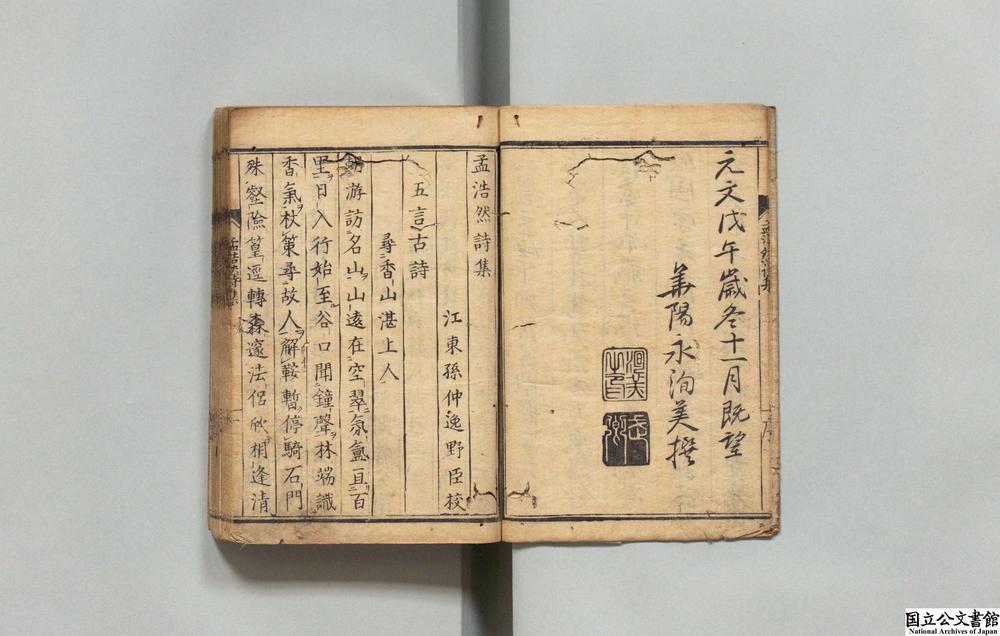 元文戊午歲冬十一月既望
華陽永洵美撰
洵美
孟浩然詩集
江東孫仲逸野臣校
五言古詩
尋香山湛上人
朝游訪名山山遠在空翠氛氳亘百
里日入行始至谷口聞鐘聲林端識
香氣杖策尋故人解鞍暫停騎石門
殊壑險篁逕轉森邃法侶欣相逢清
国立公文書館
National Archives of Japan